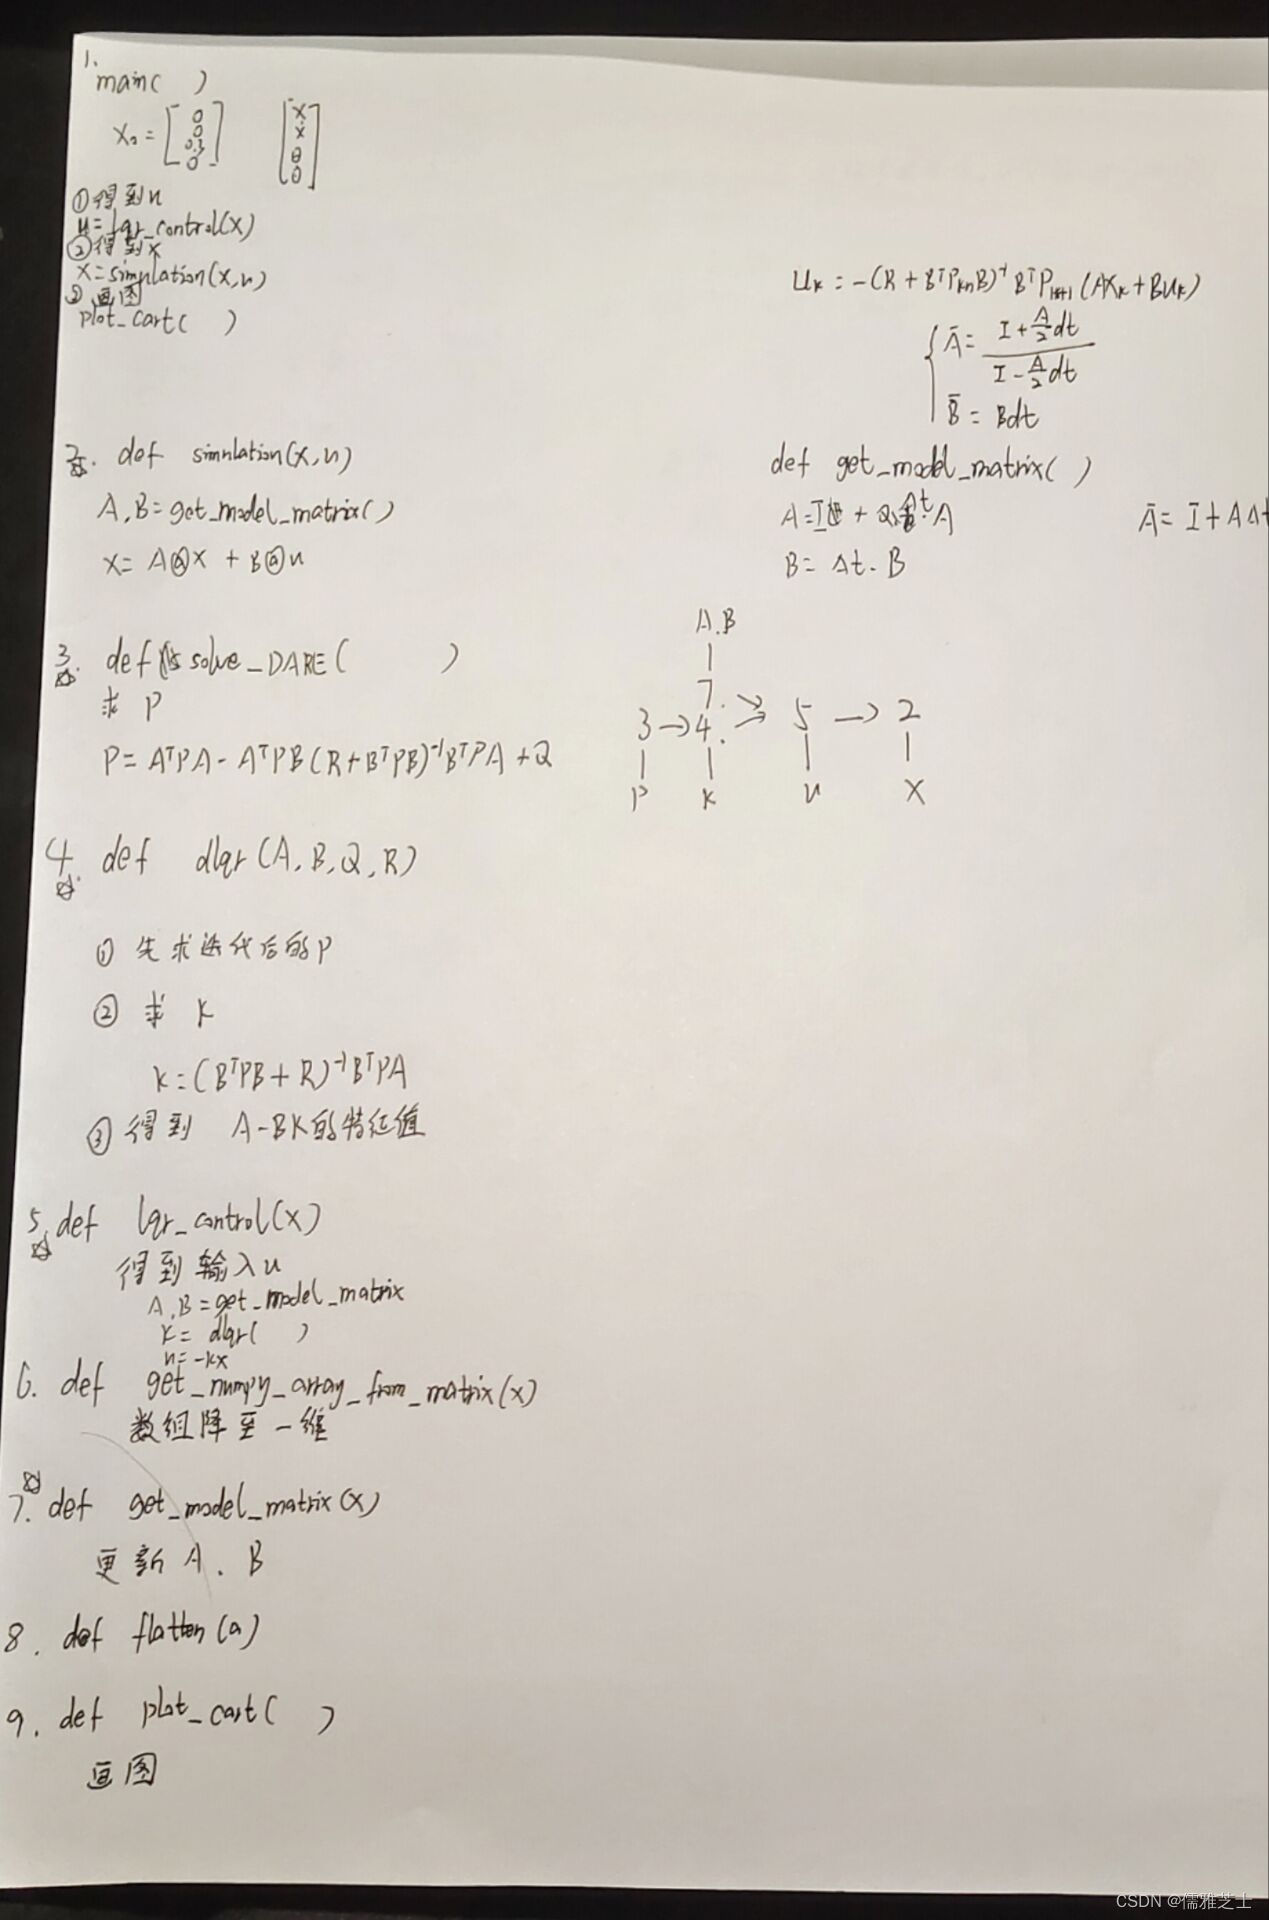 1.
main( )
X₀ = [0 0 0.3 0] [x ẋ θ θ̇]
①得到u
u=lqr_control(X)
②得到x
X=simulation(X,u)
③画图
plot_cart( )
Uₖ = -(R + BᵀPₖ₊₁B)⁻¹ BᵀPₖ₊₁(AXₖ + BUₖ)
Ā = (I + A/2 dt) / (I - A/2 dt)
B̄ = Bdt
2. def simulation(X,u)
A,B=get_model_matrix()
X= A@X + B@u
def get_model_matrix( )
A=I + Δt·A
B= Δt·B
Ā= I+AΔt
3. def solve_DARE( )
求 P
P= AᵀPA - AᵀPB(R+BᵀPB)⁻¹BᵀPA +Q
A.B
7.
3→4. → 5 → 2
P K u X
4. def dlqr(A,B,Q,R)
① 先求迭代后的P
② 求 K
K=(BᵀPB+R)⁻¹BᵀPA
③ 得到 A-BK的特征值
5. def lqr_control(X)
得到输入u
A,B=get_model_matrix
K= dlqr( )
u=-Kx
6. def get_numpy_array_from_matrix(x)
数组降至一维
7. def get_model_matrix(x)
更新 A. B
8. def flatten(a)
9. def plot_cart( )
画图
CSDN @儒雅芝士